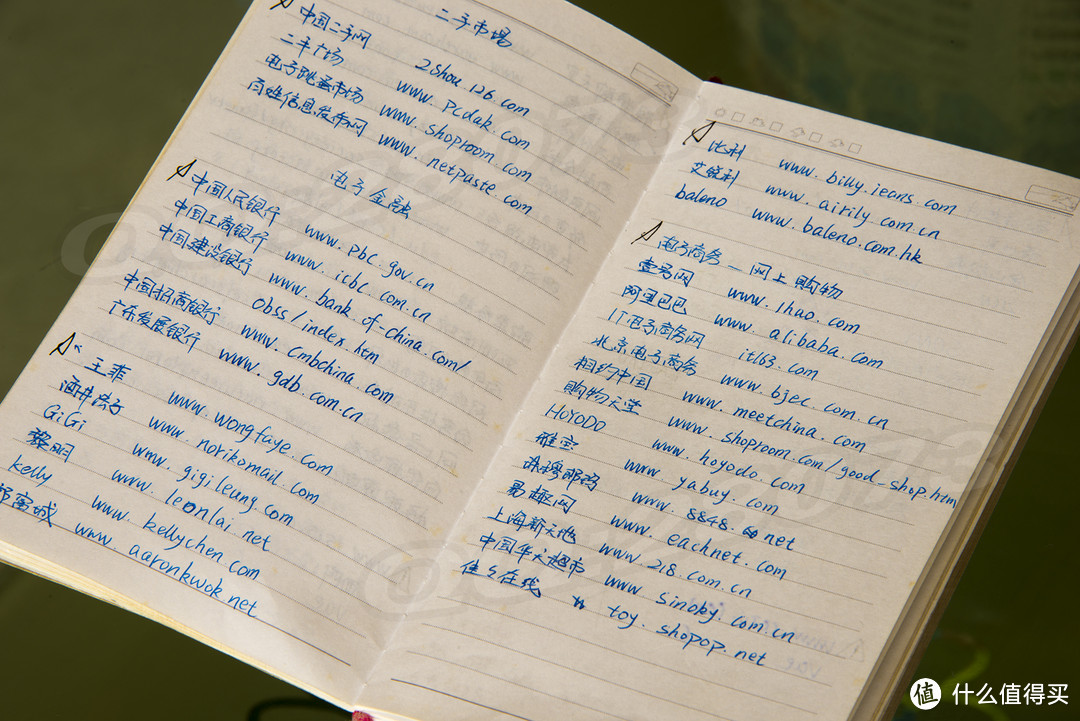 二手市场
中国二手网 2shou.126.com
二手广场 www.pcdak.com
电子跳蚤市场 www.shoproom.com
百姓信息发布网 www.netpaste.com
电子金融
中国人民银行 www.pbc.gov.cn
中国工商银行 www.icbc.com.cn
中国建设银行 www.bank-of-china.com/
obss/index.htm
中国招商银行 www.cmbchina.com
广东发展银行 www.gdb.com.cn
王菲 www.wongfaye.com
酒井法子 www.norikomail.com
GiGi www.gigileung.com
黎明 www.leonlai.net
kelly www.kellychen.com
郭富城 www.aaronkwok.net
比利 www.billy.jeans.com
艾锐利 www.airily.com.cn
baleno www.baleno.com.hk
电子商务—网上购物
壹号网 www.1hao.com
阿里巴巴 www.alibaba.com
IT电子商务网 it163.com
北京电子商务 www.bjec.com.cn
相约中国 www.meetchina.com
购物天堂 www.shoproom.com/good-shop.htm
HOYODO www.hoyodo.com
雅宝 www.yabuy.com
珠穆朗玛 www.8848.net
易趣网 www.eachnet.com
上海新天地 www.218.com.cn
中国华天超市 www.sinoky.com.cn
佳乡在线 toy.shopop.net
值 什么值得买